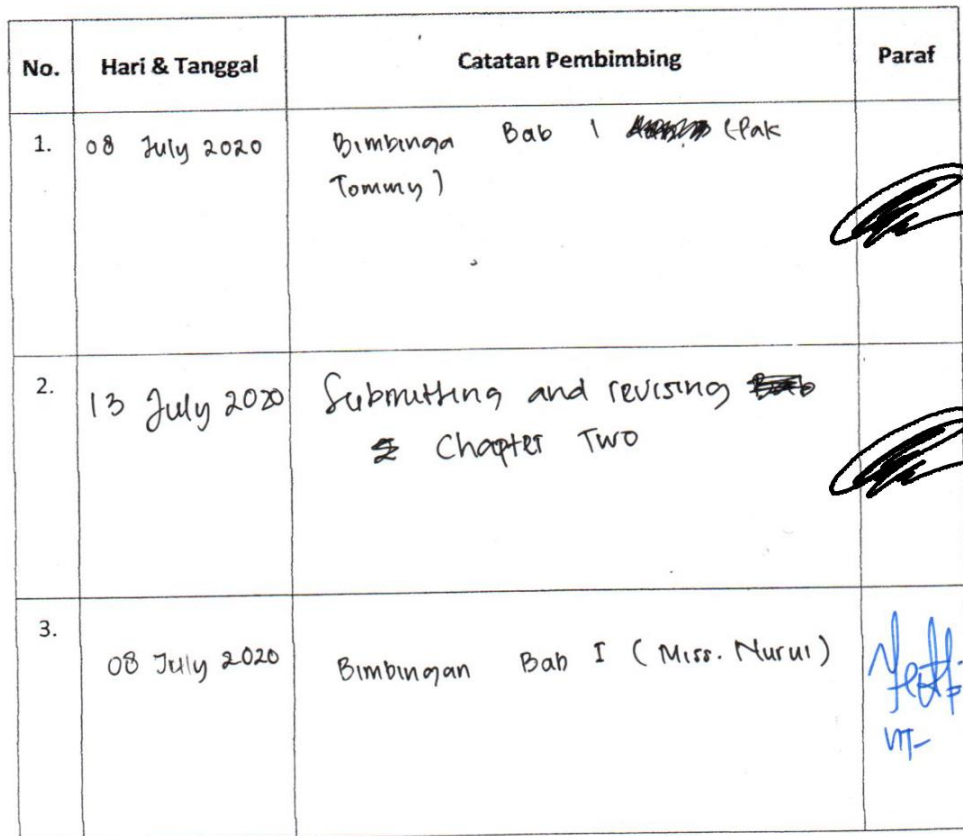 No. Hari & Tanggal Catatan Pembimbing Paraf
1. 08 July 2020 Bimbinga Bab 1 (Pak
Tommy)
2. 13 July 2020 Submitting and revising
Chapter Two
3. 08 July 2020 Bimbingan Bab I (Miss. Nurul)